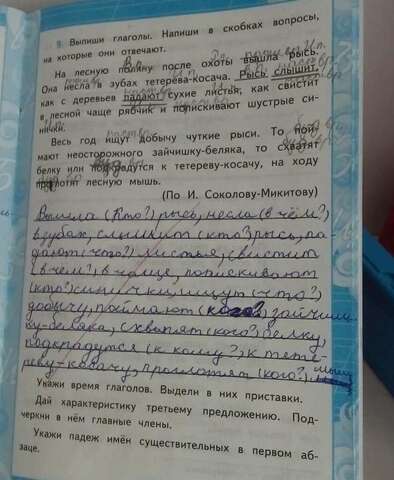 9. Выпиши глаголы. Напиши в скобках вопросы,
на которые они отвечают.
На лесную полянку после охоты вышла рысь.
Она несла в зубах тетерева-косача. Рысь слышит,
как с деревьев падают сухие листья, как свистит
в лесной чаще рябчик и попискивают шустрые си-
нички.
Весь год ищут добычу чуткие рыси. То пой-
мают неосторожного зайчишку-беляка, то схватят
белку или подкрадутся к тетереву-косачу, на ходу
проглотят лесную мышь.
(По И. Соколову-Микитову)
Вышла (Кто?) рысь, несла (в чём?)
в зубах, слышит (кто?) рысь, па-
дают (что?) листья, свистит
(в чём?), в чаще, попискивают
(кто?) синички, ищут (что?)
добычу, поймают (кого?) зайчиш-
ку-беляка, схватят (кого?) белку,
подкрадутся (к кому?), к тете-
реву-косачу, проглотят (кого?) мышь
Укажи время глаголов. Выдели в них приставки.
Дай характеристику третьему предложению. Под-
черкни в нём главные члены.
Укажи падеж имён существительных в первом аб-
заце.